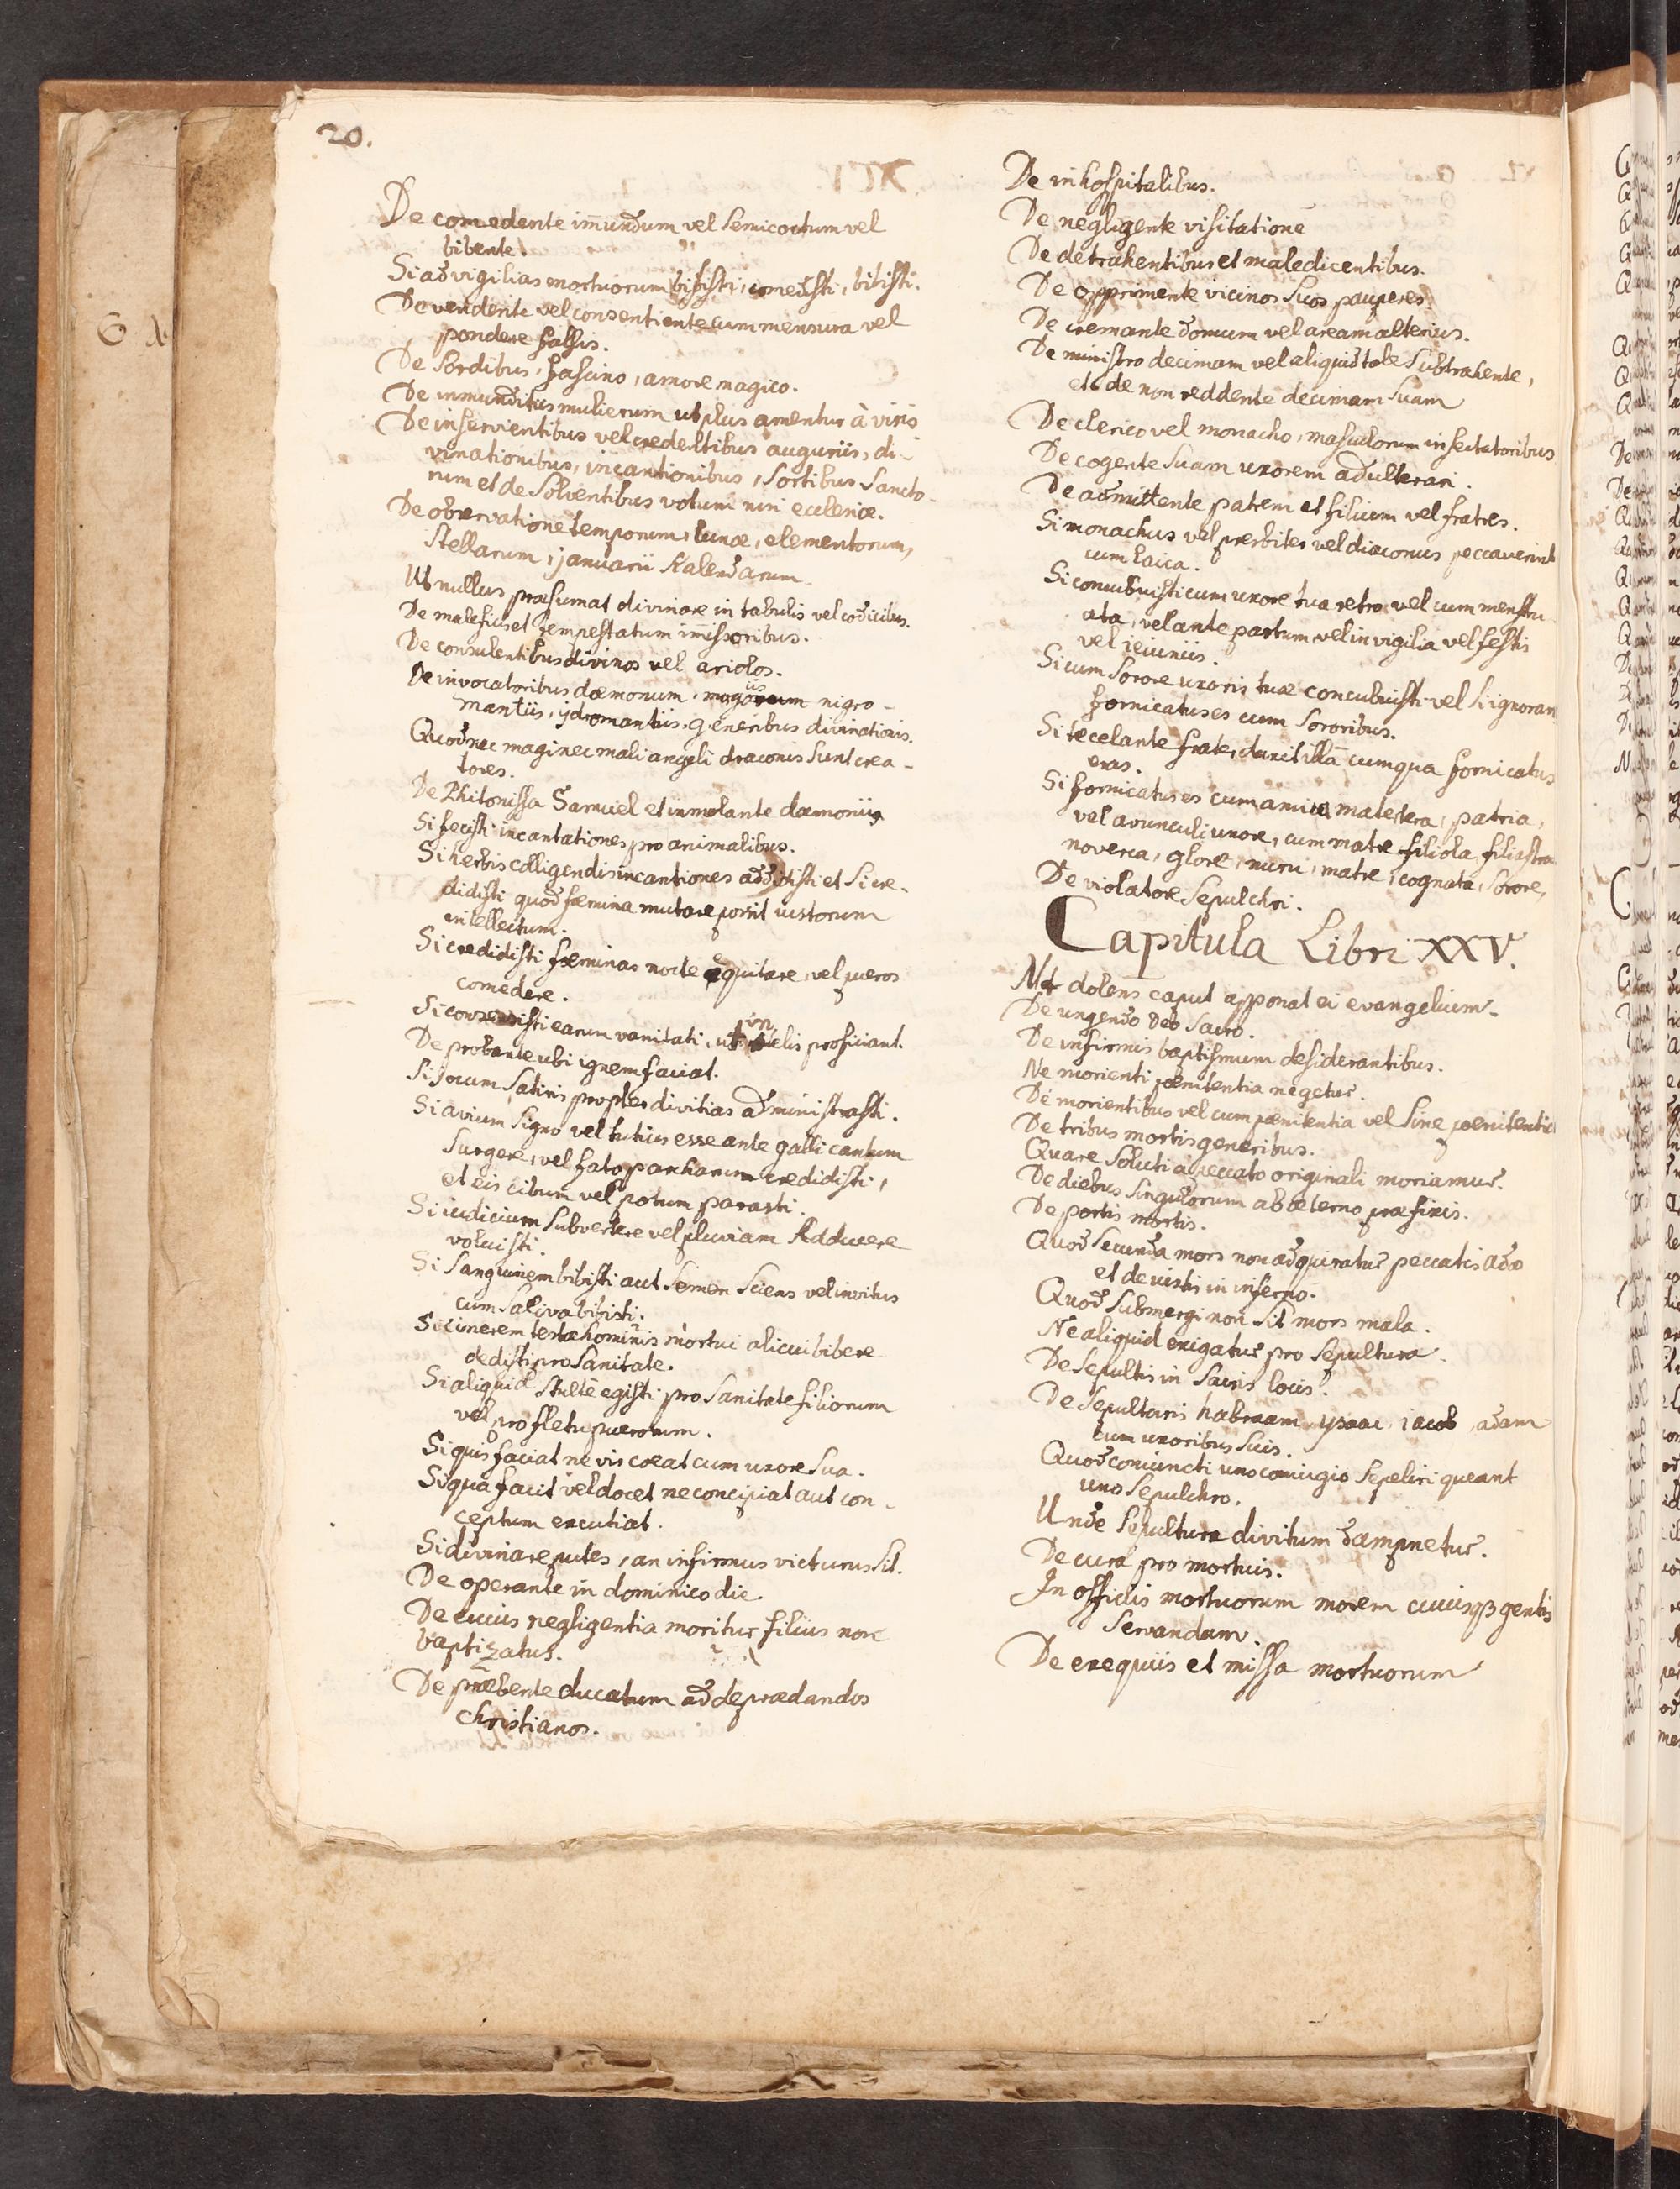 20.
De comedente im̄undum vel semicoctum vel
bibente.
Si ad vigilias mortuorum bibisti, comedisti, bibisti.
De vendente vel consentiente cum mensura vel
pondere falsis.
De sordibus, fascino, amore magico.
De inmunditiis mulierum ut plus amentur à viris
De inservientibus vel credentibus auguriis, di-
vinationibus, incantionibus, sortibus sancto-
rum et de solventibus votum nisi eclesiæ.
De observatione temporum, lunæ, elementorum,
stellarum, januarii Kalendarum.
Ut nullus præsumat divinare in tabulis vel codicibus.
De maleficis et tempestatum im̄issoribus.
De consulentibus divinos vel ariolos.
De invocatoribus dæmonum, nigro-
mantiis, ydromantiis, generibus divinationis.
Quod nec magi nec mali angeli draconis sunt crea-
tores.
De Phitonissa Samuel et inmolante dæmoniis
Si fecisti incantationes pro animalibus.
Si herbis colligendis incantiones addidisti et si cre-
didisti quod fœmina mutare possit iustorum
intellectum.
Si credidisti fœminas nocte equitare, vel pueros
comedere.
Si consensisti earum vanitati, ut in prosiciant.
De probante ubi ignem faciat.
Si jocum satiris propter divitias administrasti.
Si avium signo vel tutius esse ante galli cantum
surgere, vel fato parcharum credidisti,
et eis cibum vel potum parasti.
Si iudicium subvertere vel pluviam adducere
voluisti.
Si sanguinem bibisti aut semen sciens vel invitus
cum saliva bibisti.
Si cinerem testæ hominis mortui alicui bibere
dedisti pro sanitate.
Si aliquid stulte egisti pro sanitate filiorum
vel pro fletu puerorum.
Si quis faciat ne vis coeat cum uxore sua.
Si qua facit vel docet ne concipiat aut con-
ceptum excutiat.
Si divinare putes, an infirmus victurus sit.
De operante in dominico die.
De cuius negligentia moritur filius non
baptizatus.
De præbente ducatum ad deprædandos
christianos.
De inhospitalibus.
De negligente visitatione
De detrahentibus et maledicentibus.
De opprimente vicinos suos pauperes.
De cremante domum vel aream alterius.
De ministro decimam vel aliquid tale subtrahente,
et de non reddente decimam suam
De clerico vel monacho, masculorum insectatoribus
De cogente suam uxorem adulterari.
De admittente patrem et filium vel fratres.
Si monachus vel presbiter vel diaconus peccaverint
cum laica.
Si concubuisti cum uxore tua retro vel cum menstru-
ata, vel ante partum vel in vigilia vel festis
vel ieiuniis.
Si cum sorore uxoris tuæ concubuisti vel si ignoran
fornicatus es cum sororibus.
Si te celante frater duxit illā cum qua fornicatus
eras.
Si fornicatus es cum amica matertera, patria,
vel avunculi uxore, cum matre filiola filiastra
noverca, glore, nuru, matre, cognata, sorore,
De violatore sepulchri.
Capitula Libri XXV.
Ut dolens caput apponat ei evangelium.
De ungendo oleo sacro.
De infirmis baptismum desiderantibus.
Ne morienti pœnitentia negetur.
De morientibus vel cum pœnitentia vel sine pœnitentia
De tribus mortis generibus.
Quare soluti à peccato originali moriamur.
De diebus singulorum ab æterno præfixis.
De portis mortis.
Quod secunda mors non adquiratur peccatis adæ
et de iustis in inferno.
Quod submergi non sit mors mala.
Ne aliquid exigatur pro sepultura.
De sepultis in sacris locis.
De sepulturis habraam, ysaac, iacob, adam
cum uxoribus suis.
Quod coniuncti uno coniugio sepeliri queant
uno sepulchro.
Unde sepultura divitum dampnetur.
De cura pro mortuis.
In officiis mortuorum morem cuiusqꝫ gentis
servandum.
De exequiis et missa mortuorum